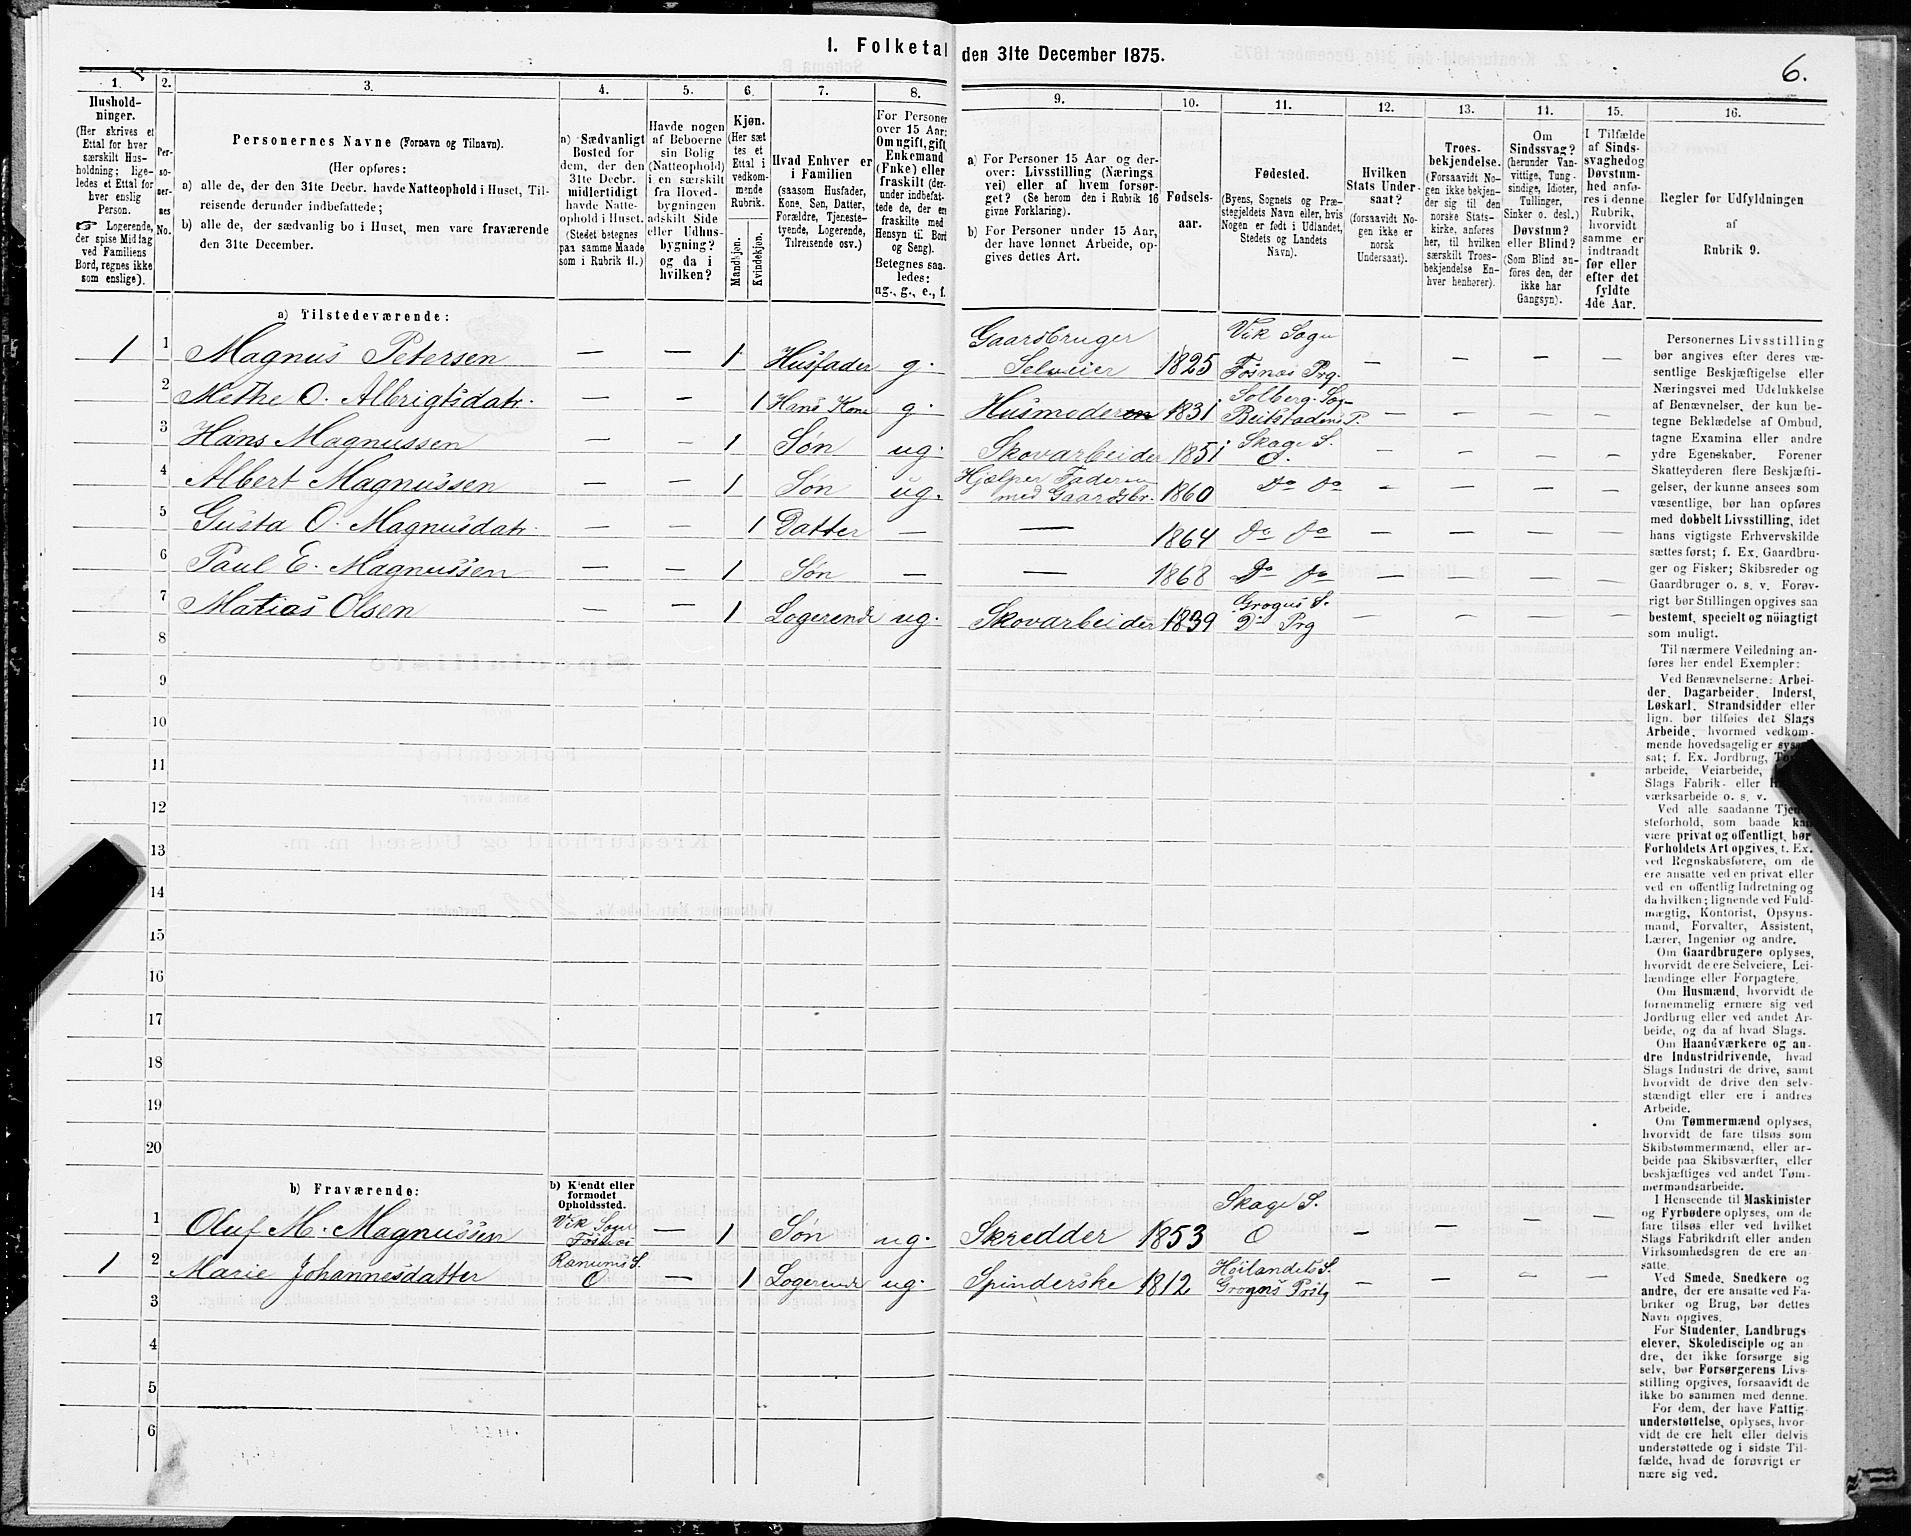 I. Folketal den 31te December 1875.
6.
1.
2.
3.
4.
5.
6.
7.
8.
9.
10.
11.
12.
13.
14.
15.
16.
Hushold-
ninger.
(Her skrives et
Ettal for hver
særskilt Hus-
holdning; lige-
ledes et Ettal for
hver enslig
Person.
☞ Logerende,
der spise Middag
ved Familiens
Bord, regnes ikke
som enslige).
Per-
so-
ner-
nes
No.
Personernes Navne (Fornavn og Tilnavn).
(Her opføres:
a) alle de, der den 31te Decbr. havde Natteophold i Huset, Til-
reisende derunder indbefattede;
b) alle de, der sædvanlig bo i Huset, men vare fraværende
den 31te December.
a) Sædvanligt
Bosted for
dem, der den
31te Decbr.
midlertidigt
havde Natte-
ophold i Huset.
(Stedet betegnes
paa samme Maade
som i Rubrik 11.)
Havde nogen
af Beboerne
sin Bolig
(Natteophold)
i en særskilt
fra Hoved-
bygningen
adskilt Side
eller Udhus-
bygning?
og da i
hvilken?
Kjøn.
(Her sæt-
tes et
Ettal i
vedkom-
mende
Rubrik.
Mandkjøn.
Kvindekjøn.
Hvad Enhver er
i Familien
(saasom Husfader,
Kone, Søn, Datter,
Forældre, Tjeneste-
tyende, Logerende,
Tilreisende osv.)
For Personer
over 15 Aar:
Om ugift, gift,
Enkemand
(Enke) eller
fraskilt (der-
under indbefat-
tede de, der ere
fraskilte med
Hensyn til Bord
og Seng).
Betegnes saa-
ledes:
ug., g., e., f.
a) For Personer 15 Aar og der-
over: Livsstilling (Nærings
vei) eller af hvem forsør-
get? (Se herom den i Rubrik 16
givne Forklaring).
b) For Personer under 15 Aar,
der have lønnet Arbeide, op-
gives dettes Art.
Fødsels-
aar.
Fødested.
(Byens, Sognets og Præ-
stegjeldets Navn eller, hvis
Nogen er født i Udlandet,
Stedets og Landets
Navn).
Hvilken
Stats Under-
saat?
(forsaavidt No-
gen ikke er
norsk
Undersaat).
Troes-
bekjendelse.
(Forsaavidt No-
gen ikke bekjen-
der sig til den
norske Stats-
kirke, anføres
her, til hvilken
særskilt Troes-
bekjendelse En-
hver henhører).
Om
Sindssvag?
(herunder Van-
vittige, Tung-
sindige, Idioter,
Tullinger,
Sinker o. desl.)
Døvstum?
eller Blind?
(Som Blind an-
føres den, der
ikke har
Gangsyn).
I Tilfælde
af Sinds-
svaghed og
Døvstum-
hed anfø-
res i denne
Rubrik,
hvorvidt
samme er
indtraadt
før eller
efter det
fyldte
4de Aar.
Regler for Udfyldningen
af
Rubrik 9.
a) Tilstedeværende:
1 1 Magnus Petersen — — 1 Husfader g. Gaardbruger Selveier 1825 Vik Sogn Fosnæs Prg. — — — —
2 Methe O. Albrigtsdatr. — — 1 Hans Kone g. Husmoderen 1831 Solberg Sog- Beitstadens P. — — — —
3 Hans Magnussen — — 1 Søn ug. Skovarbeider 1851 Skage S. O. — — — —
4 Albert Magnussen — — 1 Søn ug. Hjælper Faderen med Gaardsbr. 1860 Do Do — — — —
5 Gusta O. Magnusdatr. — — 1 Datter — — 1864 Do Do — — — —
6 Paul E. Magnussen — — 1 Søn — — 1868 Do Do — — — —
7 Matias Olsen — — 1 Logerende ug. Skovarbeider 1839 Grogns S. Do Prg — — — —
8
9
10
11
12
13
14
15
16
17
18
19
20
b) Fraværende:
b) Kjendt eller
formodet
Opholdssted.
1 Oluf M. Magnussen Vik Sogn Fosnæs — 1 Søn ug. Skredder 1853 Skage S. O — — — —
1 2 Marie Johannesdatter Ranums S. O — 1 Logerende ug. Spinderske 1812 Høilandets S. Grogns Prstg — — — —
3
4
5
6
Personernes Livsstilling
bør angives efter deres væ-
sentlige Beskjæftigelse eller
Næringsvei med Udelukkelse
af Benævnelser, der kun be-
tegne Beklædelse af Ombud,
tagne Examina eller andre
ydre Egenskaber. Forener
Skatteyderen flere Beskjæfti-
gelser, der kunne ansees som
væsentlige, bør han opføres
med dobbelt Livsstilling, idet
hans vigtigste Erhvervskilde
sættes først; f. Ex. Gaardbru-
ger og Fisker; Skibsreder og
Gaardbruger o. s. v. Forøv-
rigt bør Stillingen opgives saa
bestemt, specielt og nöiagtigt
som muligt.
Til nærmere Veiledning an-
føres her endel Exempler:
Ved Benævnelserne: Arbei-
der, Dagarbeider, Inderst,
Løskarl, Strandsidder eller
lign. bør tilføies det Slags
Arbeide, hvormed vedkom-
mende hovedsagelig er syssel-
sat; f. Ex. Jordbrug,
arbeide, Veiarbeide,
Slags Fabrik- eller
værksarbeide o. s. v.
Ved alle saadanne Tjene-
steforhold, som baade kan
være privat og offentligt, bør
Forholdets Art opgives, t. Ex.
ved Regnskabsførere, om de
ere ansatte ved en privat eller
ved en offentlig Indretning og
da hvilken; lignende ved Fuld-
mægtig, Kontorist, Opsyns-
mand, Forvalter, Assistent,
Lærer, Ingeniør og andre.
Om Gaardbrugere oplyses,
hvorvidt de ere Selveiere, Lei-
lændinge eller Forpagtere.
Om Husmænd, hvorvidt de
fornemmelig ernære sig ved
Jordbrug eller ved andet Ar-
beide, og da af hvad Slags.
Om Haandværkere og an-
dre Industridrivende, hvad
Slags Industri de drive, samt
hvorvidt de drive den selv-
stændigt eller ere i andres
Arbeide.
Om Tømmermænd oplyses,
hvorvidt de fare tilsøs som
Skibstømmermænd, eller ar-
beide paa Skibsværfter, eller
beskjæftiges ved andet Tøm-
mermandsarbeide.
I Henseende til Maskinister
og Fyrbødere oplyses, om de
fare tilsøs eller ved hvilket
Slags Fabrikdrift eller anden
Virksomhedsgren de ere an-
satte.
Ved Smede, Snedkere og
andre, der ere ansatte ved Fa-
briker og Brug, bør dettes
Navn opgives.
For Studenter, Landbrugs
elever, Skoledisciple og an-
dre, der ikke forsørge sig
selv, bør Forsørgerens Livs-
stilling opgives, forsaavidt de
ikke bo sammen med denne.
For dem, der have Fattig-
understøttelse, oplyses, hvor-
vidt de ere helt eller delvis
understøttede og i sidste Til-
fælde, hvad de forøvrigt er
nære sig ved.